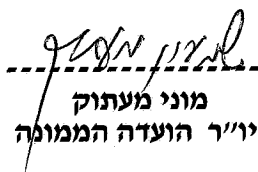 שמעון
מוני מעתוק
יו״ר הועדה הממונה